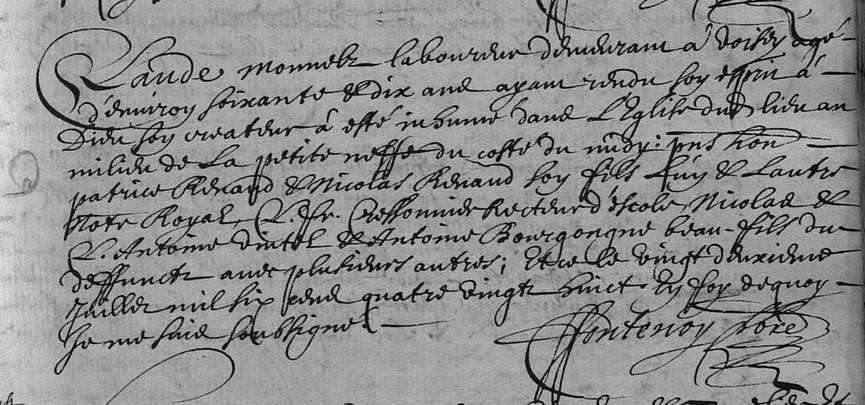 Claude monnelz laboureur demeurant a voisey agé
d'environ soixante & dix ans ayant rendu son esprit a
Dieu son createur a esté inhumé dans L'Eglise dud lieu au
milieu de La petite neffe du costé du midy: pns hon
patrice Renard & Nicolas Renard son fils L'un & L'autre
Note Royal, fr. Cressonnier Recteur d'escole, Nicolas &
Antoine & Antoine Bourgongne beau-fils du
deffunct avec plusieurs autres; Et ce le vingt deuxieme
Juillet mil six cens quatre vingts En foy de quoy
Je me suis soubsigné
ffontenoy